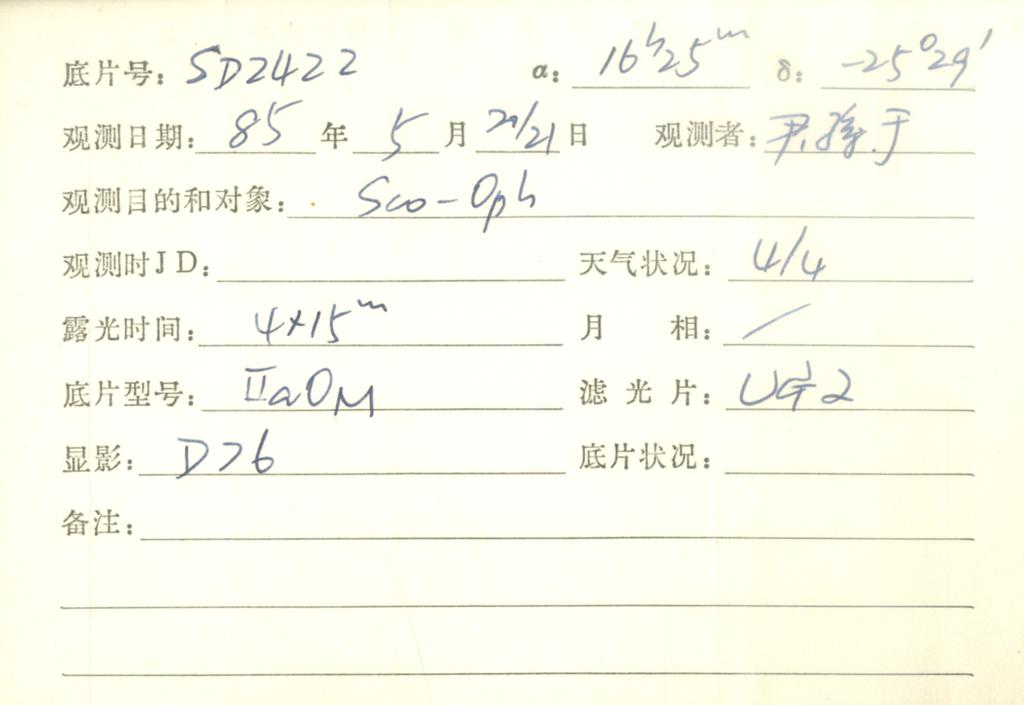 底片号: SD2422 α: 16h25m δ: -25°29′
观测日期: 85 年 5 月 20/21 日 观测者: 尹 于
观测目的和对象: Sco-Oph
观测时JD: 天气状况: 4/4
露光时间: 4×15m 月 相: /
底片型号: IIaOM 滤 光 片: UG2
显影: D76 底片状况:
备注: